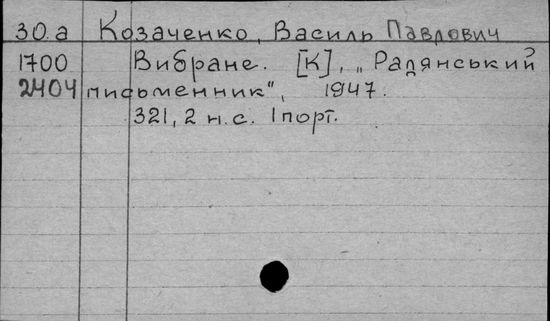 30.а Козаченко, Василь Павлович
1700 Вибране. [К], „Радянський
2404 письменник", 1947.
321, 2 н.с. 1 порт.